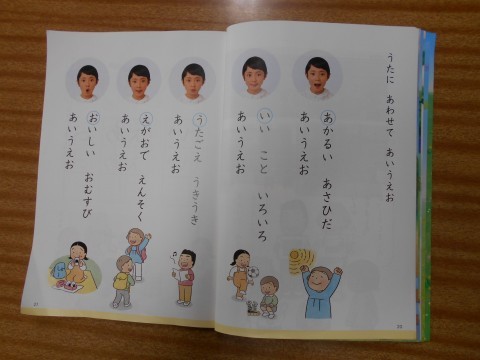 うたに あわせて あいうえお
あかるい あさひだ
あいうえお
いい こと いろいろ
あいうえお
うたごえ うきうき
あいうえお
えがおで えんそく
あいうえお
おいしい おむすび
あいうえお